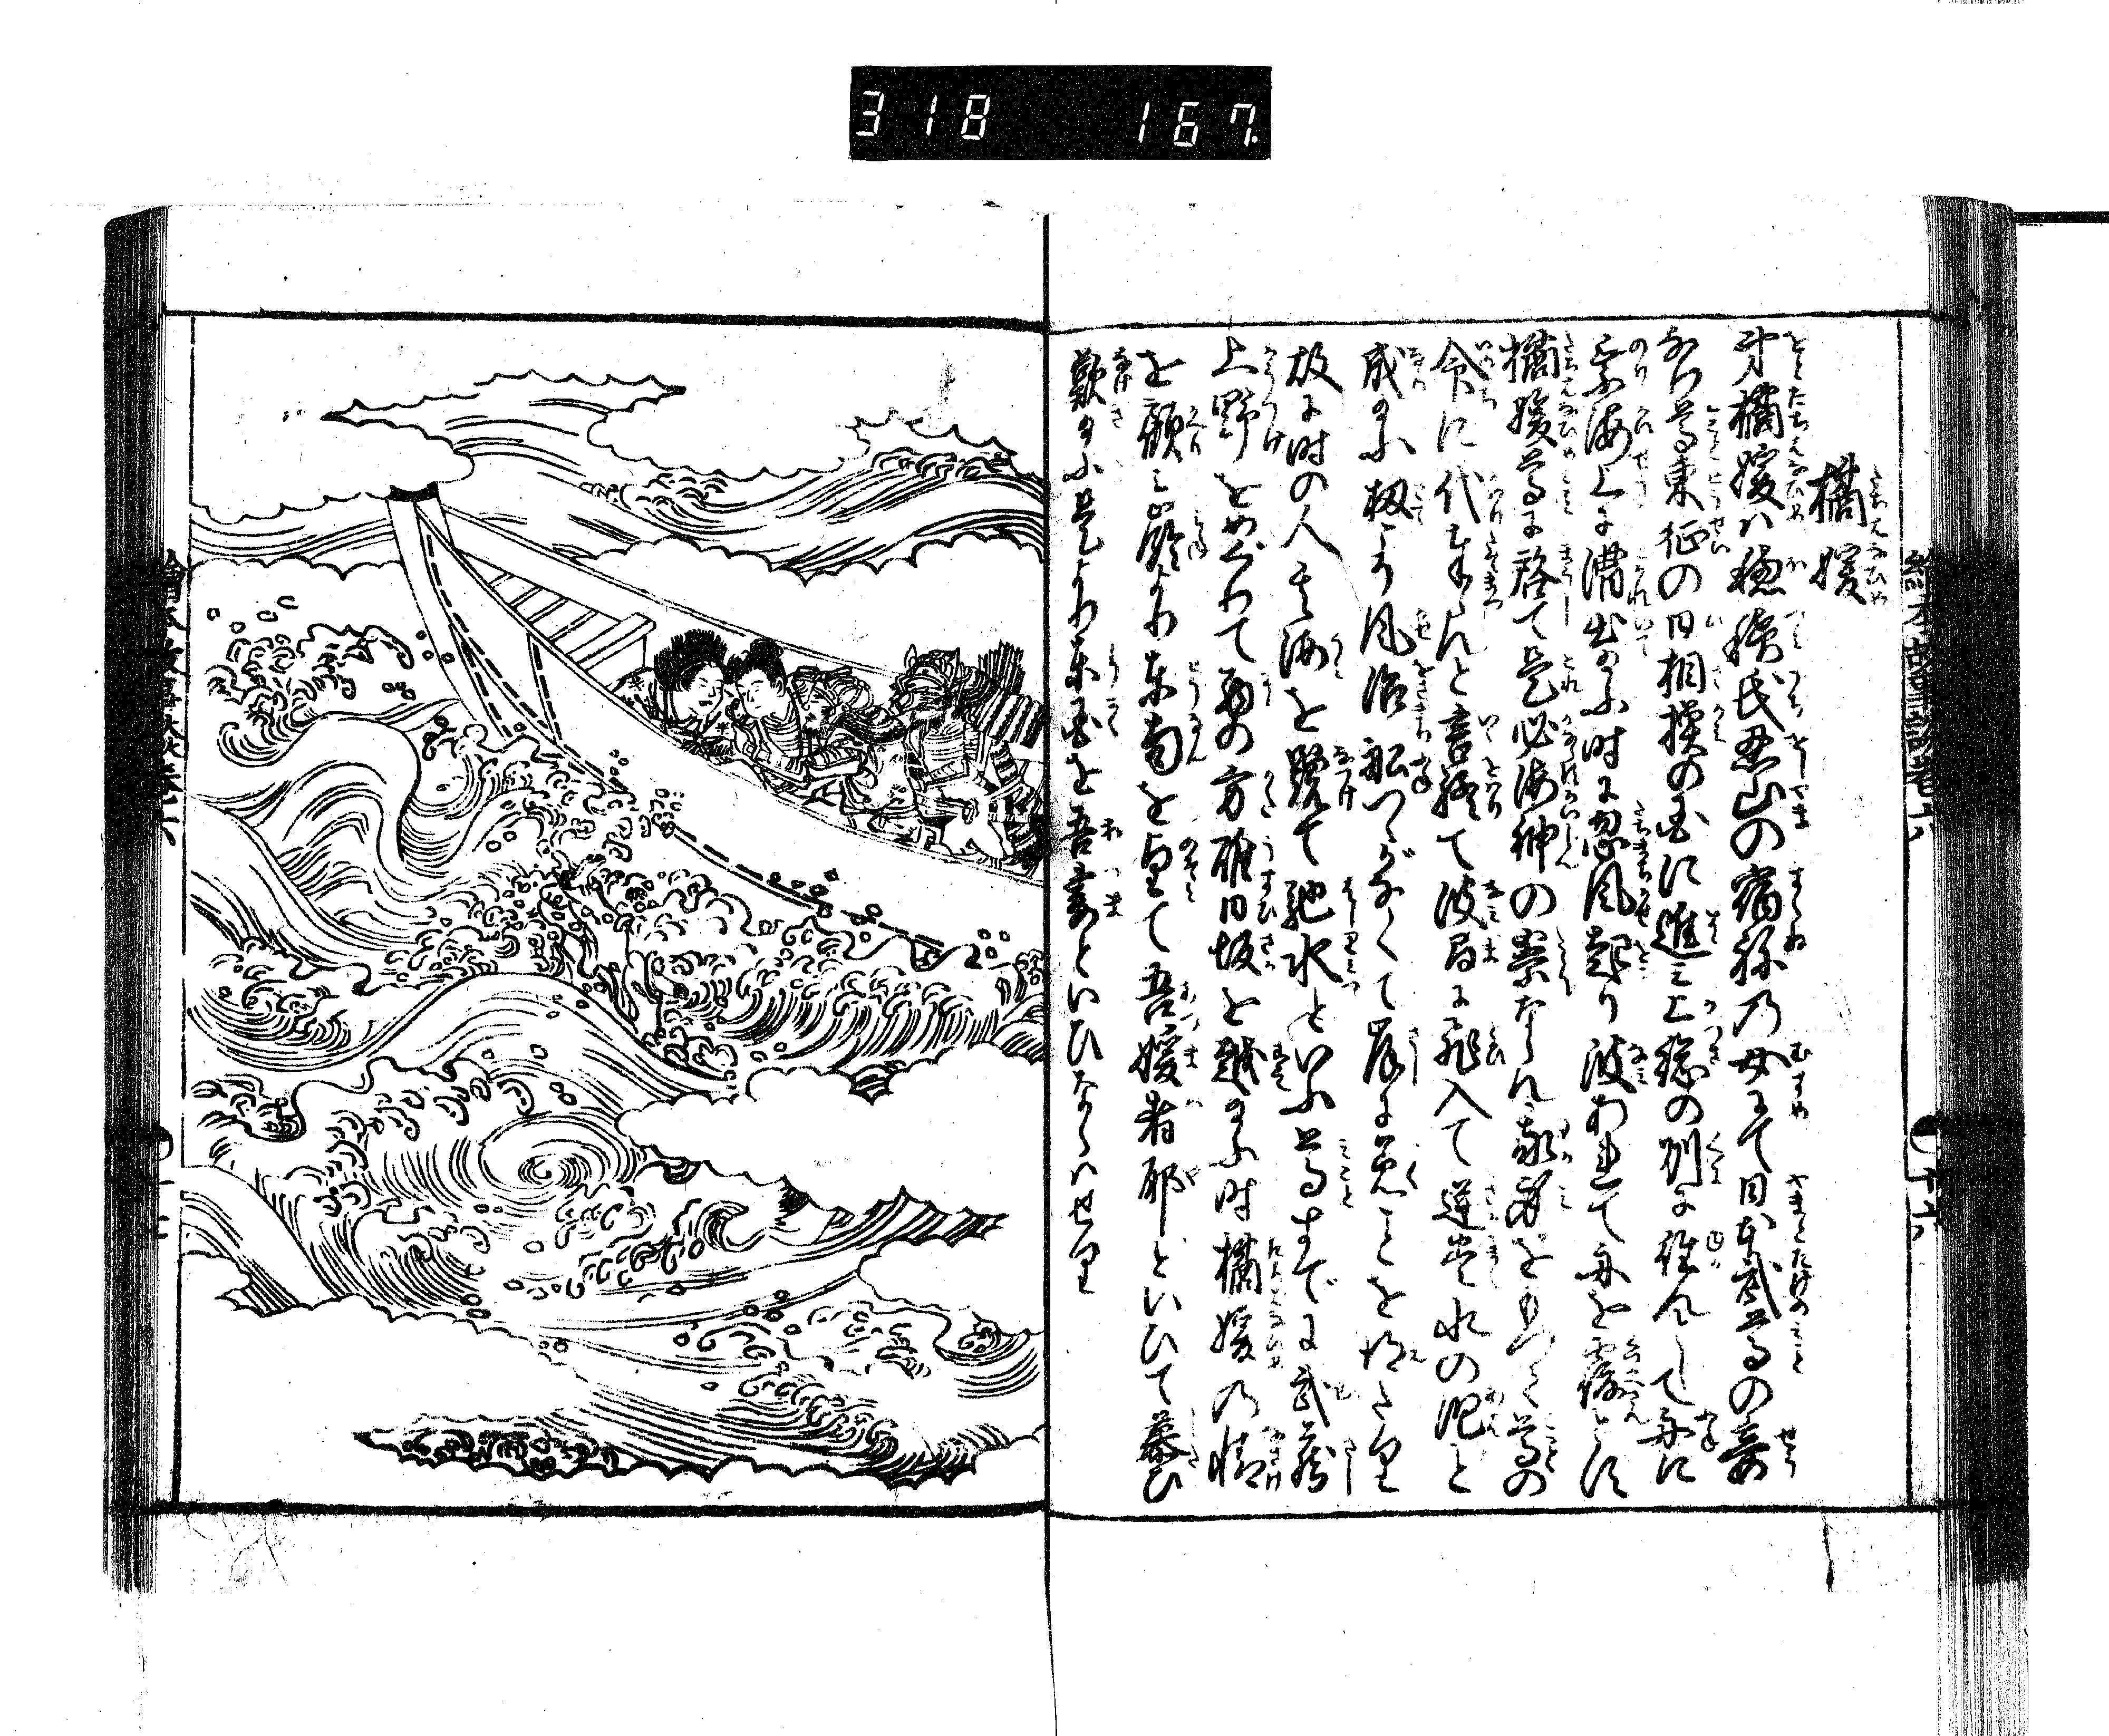 318 167
橘媛
弟橘媛ハ穂積氏忍山の宿祢乃女にて日本武尊の妾
なり尊東征の日相摸の国に進ミ上総の州に往んして舟に
のり海上に漕出給ふ時に忽風起り波あれて舟を覆さんとす
橘媛尊に啓て是必海神の祟なられ我身をもつて尊の
命に代奉らんと言竟て波間に飛入て逆巻水の泡と
成給ふ扨こそ風治船つゝがなくて岸に着ことを得たり
故に時の人其海を号て馳水といふ尊すでに武蔵
上野をめぐりて西の方碓日坂を越給ふ時橘媛乃情
を顧ミ嶺より東南を望て吾媛者耶といひて慕ひ
歎き給ふ是より東国を吾妻といひならハせり